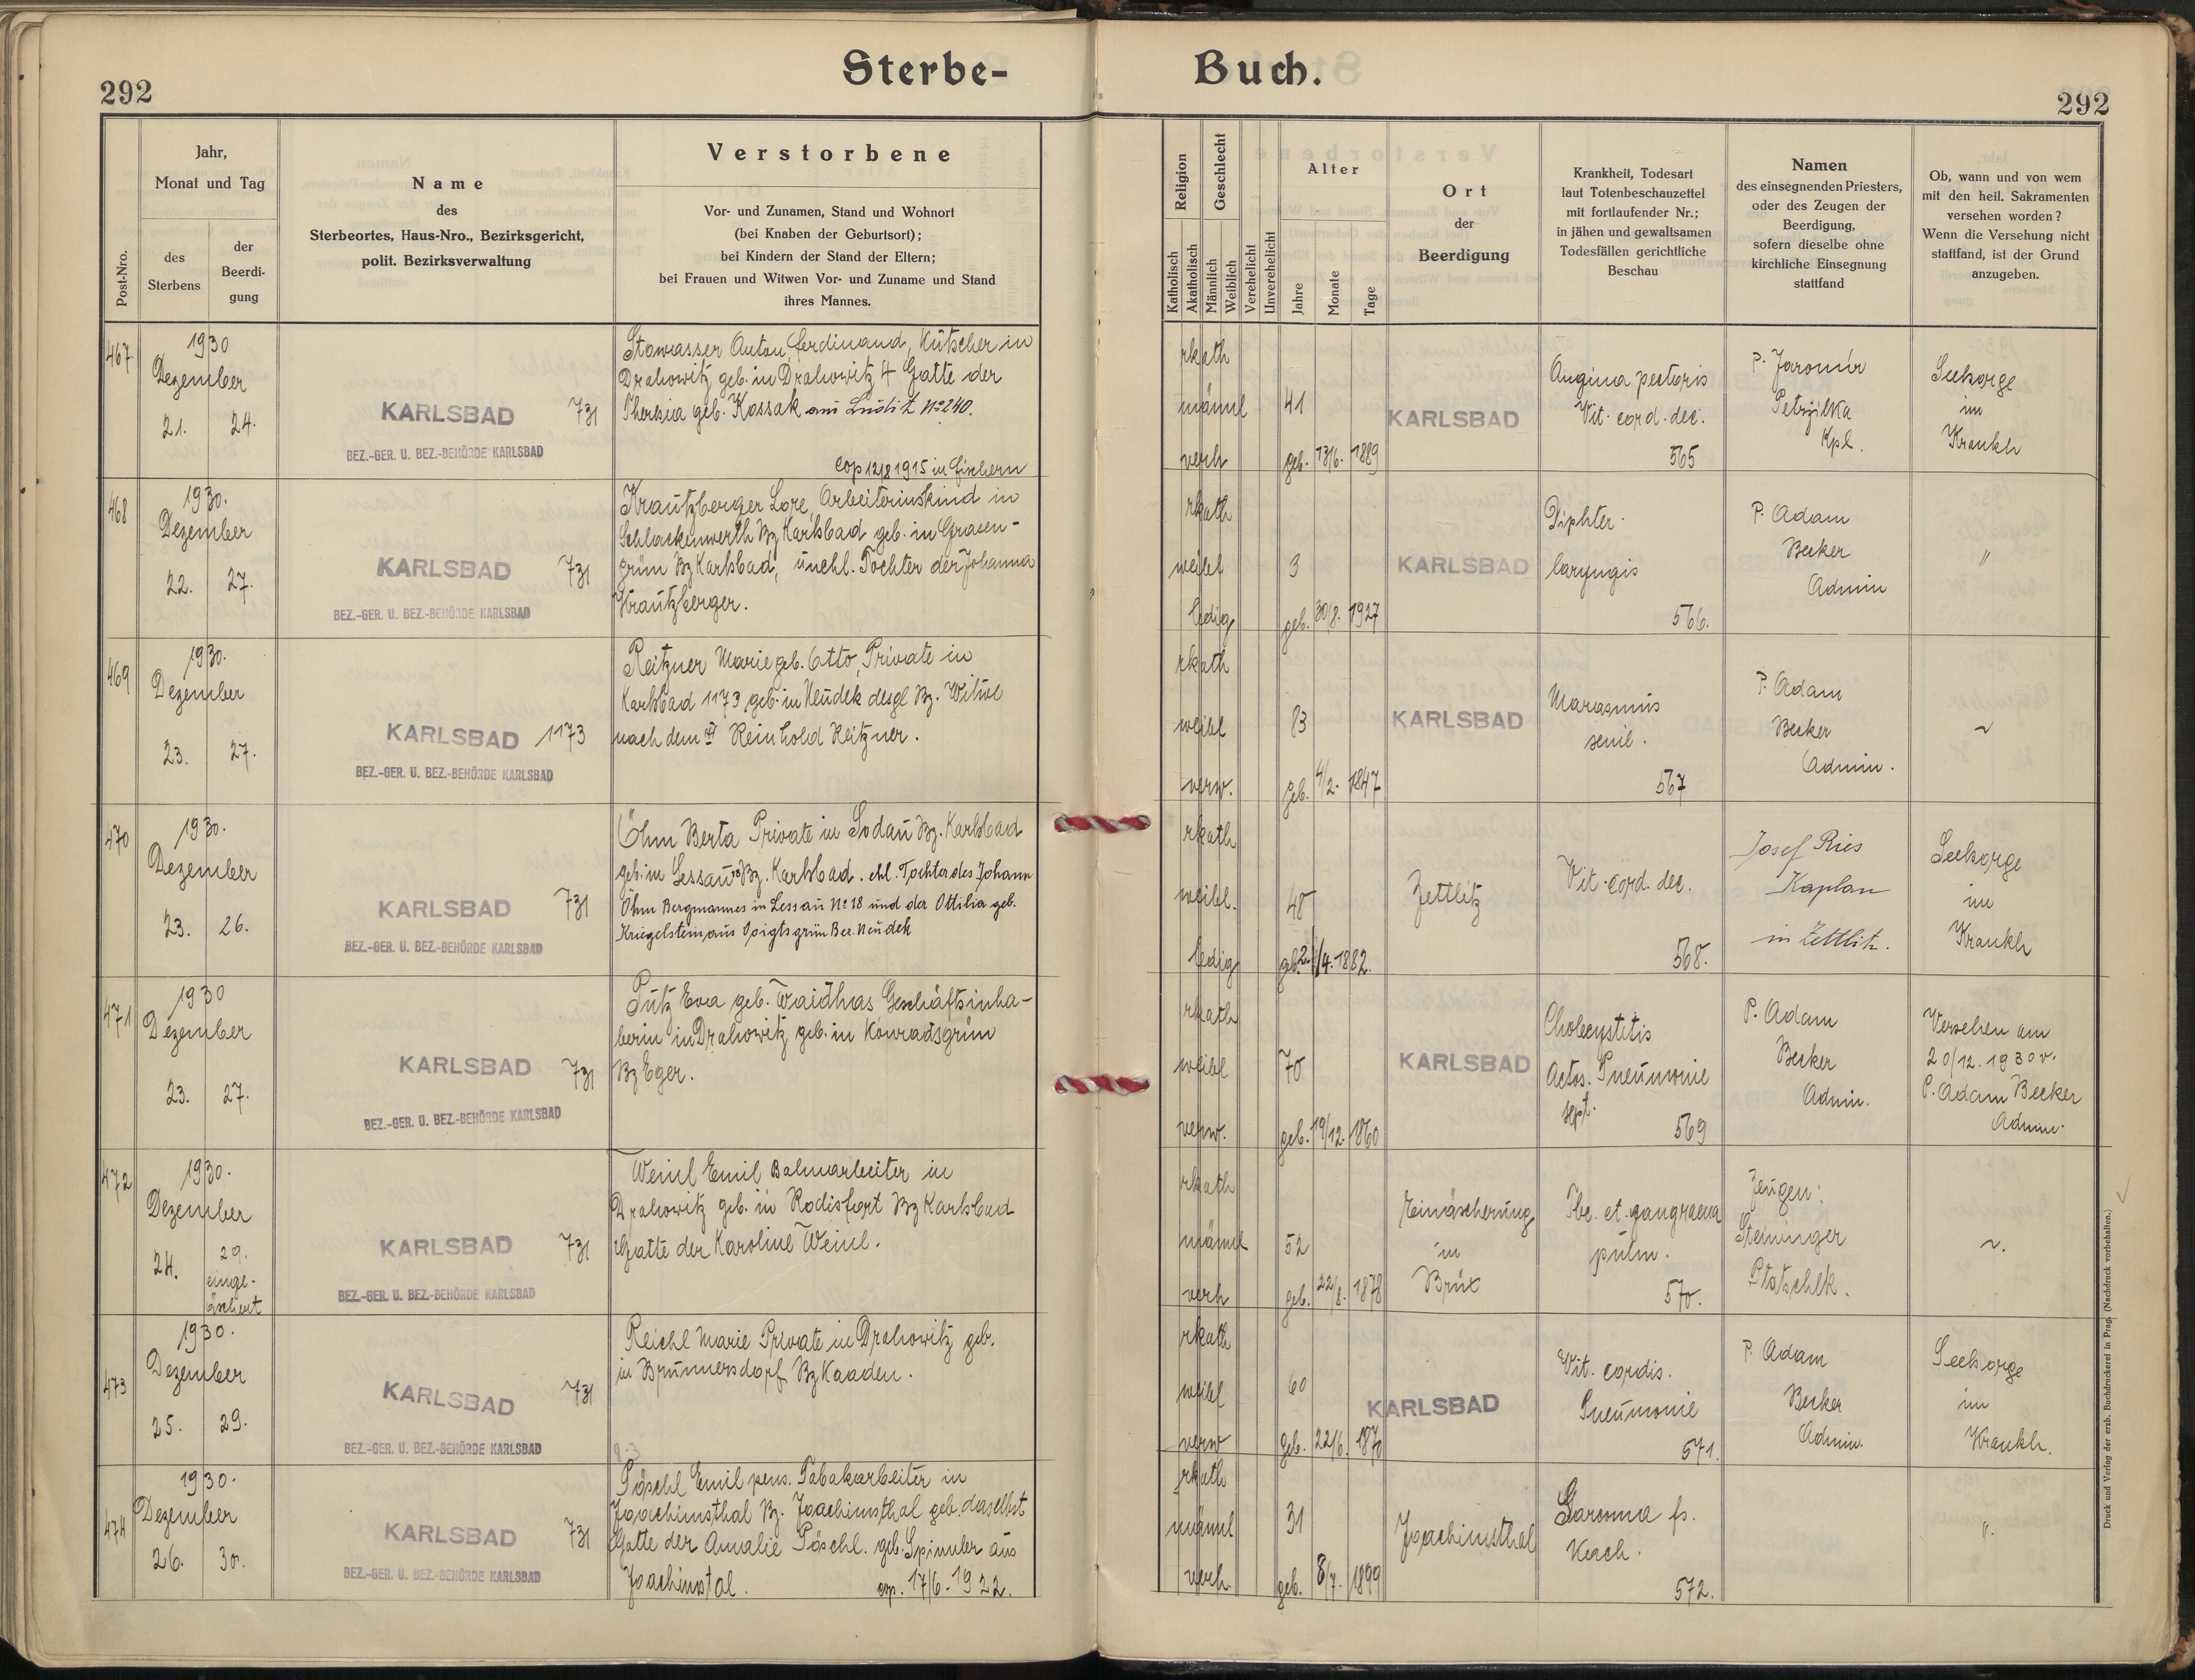 292
Sterbe-
Buch.
292
Post-Nro.
Jahr,
Monat und Tag
des
Sterbens
der
Beerdi-
gung
Name
des
Sterbeortes, Haus-Nro., Bezirksgericht,
polit. Bezirksverwaltung
Verstorbene
Vor- und Zunamen, Stand und Wohnort
(bei Knaben der Geburtsort);
bei Kindern der Stand der Eltern;
bei Frauen und Witwen Vor- und Zuname und Stand
ihres Mannes.
Religion
Katholisch
Akatholisch
Geschlecht
Männlich
Weiblich
Verehelicht
Unverehelicht
Alter
Jahre
Monate
Tage
Ort
der
Beerdigung
Krankheit, Todesart
laut Totenbeschauzettel
mit fortlaufender Nr.;
in jähen und gewaltsamen
Todesfällen gerichtliche
Beschau
Namen
des einsegnenden Priesters,
oder des Zeugen der
Beerdigung,
sofern dieselbe ohne
kirchliche Einsegnung
stattfand
Ob, wann und von wem
mit den heil. Sakramenten
versehen worden?
Wenn die Versehung nicht
stattfand, ist der Grund
anzugeben.
467
1930
Dezember
21. 24.
KARLSBAD 731
BEZ.-GER. U. BEZ.-BEHÖRDE KARLSBAD
Stowasser Anton Ferdinand, Kutscher in
Drahowitz geb. in Drahowitz 4 Gatte der
Theresia geb. Kossak aus Luditz No 240.
cop 12/8 1915 in Fischern
rkath
männl 41
verh geb. 13/6. 1889
KARLSBAD
Angina pectoris
Vit. cord. dec.
565
P. Jaromír
Petrzilka
Kpl.
Seelsorge
im
Krankh
468
1930.
Dezember
22. 27.
KARLSBAD 731
BEZ.-GER. U. BEZ.-BEHÖRDE KARLSBAD
Krautzberger Lore, Arbeiterinskind in
Schlackenwerth Bz Karlsbad geb. in Grasen-
grün Bz Karlsbad, unehl. Tochter der Johanna
Krautzberger.
rkath
weibl 3
ledig geb. 30/8. 1927
KARLSBAD
Diphter.
laryngis
566.
P. Adam
Becker
Admin
"
469
1930.
Dezember
23. 27.
KARLSBAD 1173
BEZ.-GER. U. BEZ.-BEHÖRDE KARLSBAD
Reitzner Marie geb. Otto, Private in
Karlsbad 1173 geb. in Neudek desgl Bz. Witwe
nach dem Reinhold Reitzner.
rkath
weibl 83
verw. geb. 4/2. 1847
KARLSBAD
Marasmus
senil.
567
P. Adam
Becker
Admin.
~
470
1930.
Dezember
23. 26.
KARLSBAD 731
BEZ.-GER. U. BEZ.-BEHÖRDE KARLSBAD
Öhm Berta Private in Sodau Bz. Karlsbad
geb. in Lessau Bz. Karlsbad. ehl. Tochter des Johann
Öhm Bergmannes in Lessau No 18 und der Ottilia geb.
Kriegelstein aus Voigtsgrün Bez. Neudek
rkath
weibl. 48
ledig geb. 2./4. 1882.
Zettlitz
Vit. cord. dec.
568.
Josef Ries
Kaplan
in Zettlitz.
Seelsorge
im
Krankh
471
1930
Dezember
23. 27.
KARLSBAD 731
BEZ.-GER. U. BEZ.-BEHÖRDE KARLSBAD
Putz Eva geb. Waidhas Geschäftsinha-
berin in Drahowitz geb. in Konradsgrün
Bz Eger.
rkath
weibl 70
verw. geb. 19/12. 1860
KARLSBAD
Cholecystitis
Pneumonie
569
P. Adam
Becker
Admin.
Versehen am
20/12. 1930 v.
P. Adam Becker
Admin.
472
1930.
Dezember
24. 29.
einge-
äschert
KARLSBAD 731
BEZ.-GER. U. BEZ.-BEHÖRDE KARLSBAD
Weinl Emil Bahnarbeiter in
Drahowitz geb. in Rodisfort Bz Karlsbad
Gatte der Karoline Weinl.
rkath
männl 52
verh geb. 22/8. 1878
Einäscherung
in
Brüx
Tbc. et. gangraena
pulm.
570.
Zeugen:
Steininger
~.
473
1930.
Dezember
25. 29.
KARLSBAD 731
BEZ.-GER. U. BEZ.-BEHÖRDE KARLSBAD
Reichl Marie Private in Drahowitz geb.
in Brunnersdorf Bz Kaaden.
rkath
weibl 60
verw geb. 22/6. 1870
KARLSBAD
Vit. cordis.
Pneumonie
571.
P. Adam
Becker
Admin.
Seelsorge
im
Krankh.
474
1930.
Dezember
26. 30.
KARLSBAD 731
BEZ.-GER. U. BEZ.-BEHÖRDE KARLSBAD
Pöschl Emil pens. Tabakarbeiter in
Joachimsthal Bz. Joachimsthal geb. daselbst
Gatte der Amalie Pöschl. geb. Spinnler aus
Joachimstal. cop. 17/6. 1922.
rkath
männl 31
verh. geb. 8/7. 1899
Joachimsthal
572.
".
Druck und Verlag der erzb. Buchdruckerei in Prag. (Nachdruck vorbehalten.)